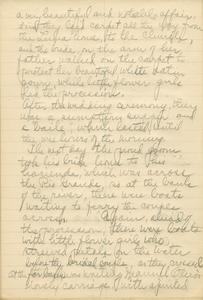 a very beautiful and notable affair.
A red carpet all the way from
the house, to the church,
and the bride, on the arm of her
father walked on the carpet to
protect her beautiful white satin
gown, while little flower girls
led the procession.
After the wedding ceremony, there
was a sumptuous supper and
a ball, which lasted until
the wee hours of the morning.
The next day the proud groom
took his bride home to his
hacienda, which was across
the Rio Grande, as at the bank
of the river, there were boats
waiting to ferry the couple
across. Again, ahead of
the procession, there were boats
with little flower girls who
strewed petals on the water
before the bridal couple, as they crossed
at the
lovely carriage with spirited